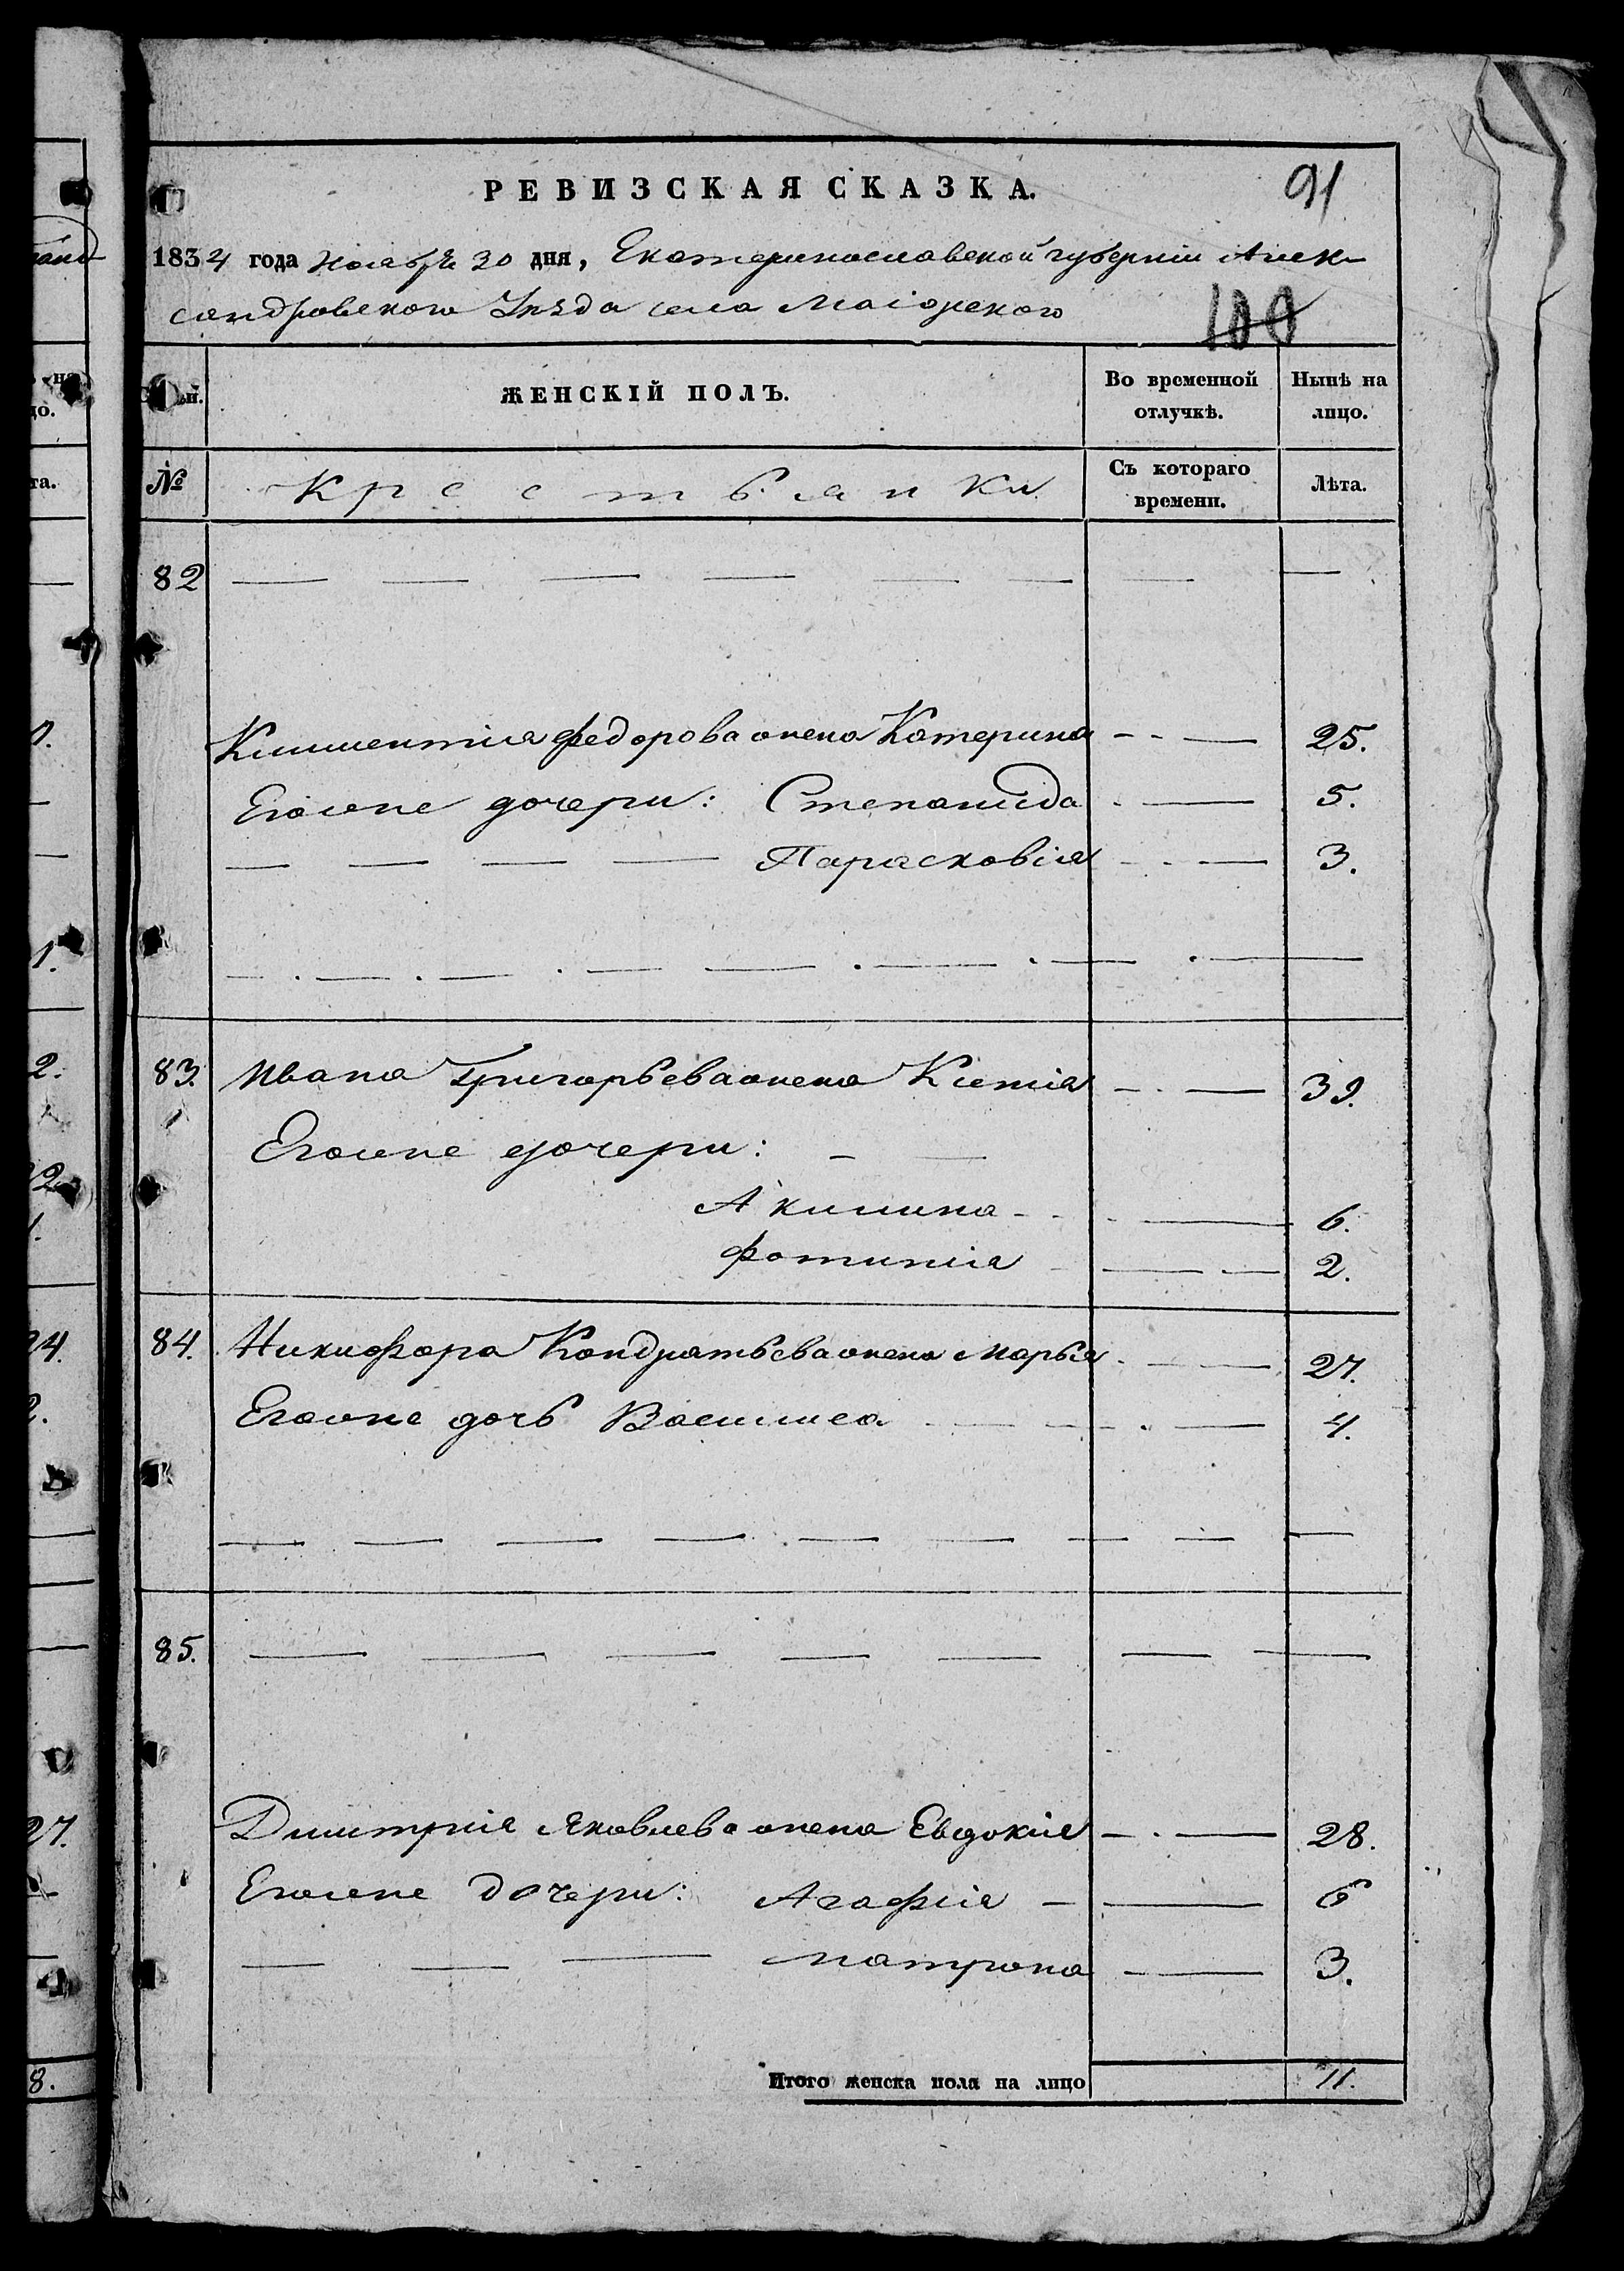 РЕВИЗСКАЯ СКАЗКА.
91
1834 года Ноября 30 дня, Екатеринославской губерніи Алек-
сандровского Уѣзда села Маіорского
100
ЖЕНСКІЙ ПОЛЪ.
Во временной отлучкѣ.
Нынѣ на лицо.
№
Крестьянки
Съ котораго времени.
Лѣта.
82
Климентія Федорова жена Катерина 25.
Егожене дочери: Степанида 5.
Парасковія 3.
83. Ивана Григорьева жена Ксенія 39.
Егожене дочери:
Акилина 6.
Фотинія 2.
84. Никифора Кондратьева жена Марья 27.
Егожене дочь Василиса 4.
85.
Дмитрія Яковлева жена Евдокія 28.
Егожене дочери: Агафія 6
Матрона 3.
Итого женска пола на лицо 11.